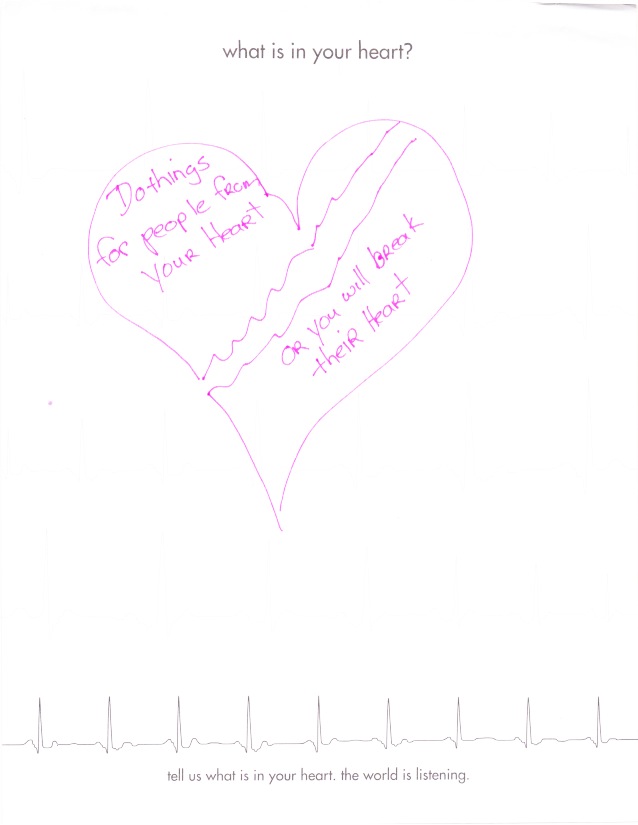 what is in your heart?
Do things
for people from
your Heart
or you will break
their Heart
tell us what is in your heart. the world is listening.